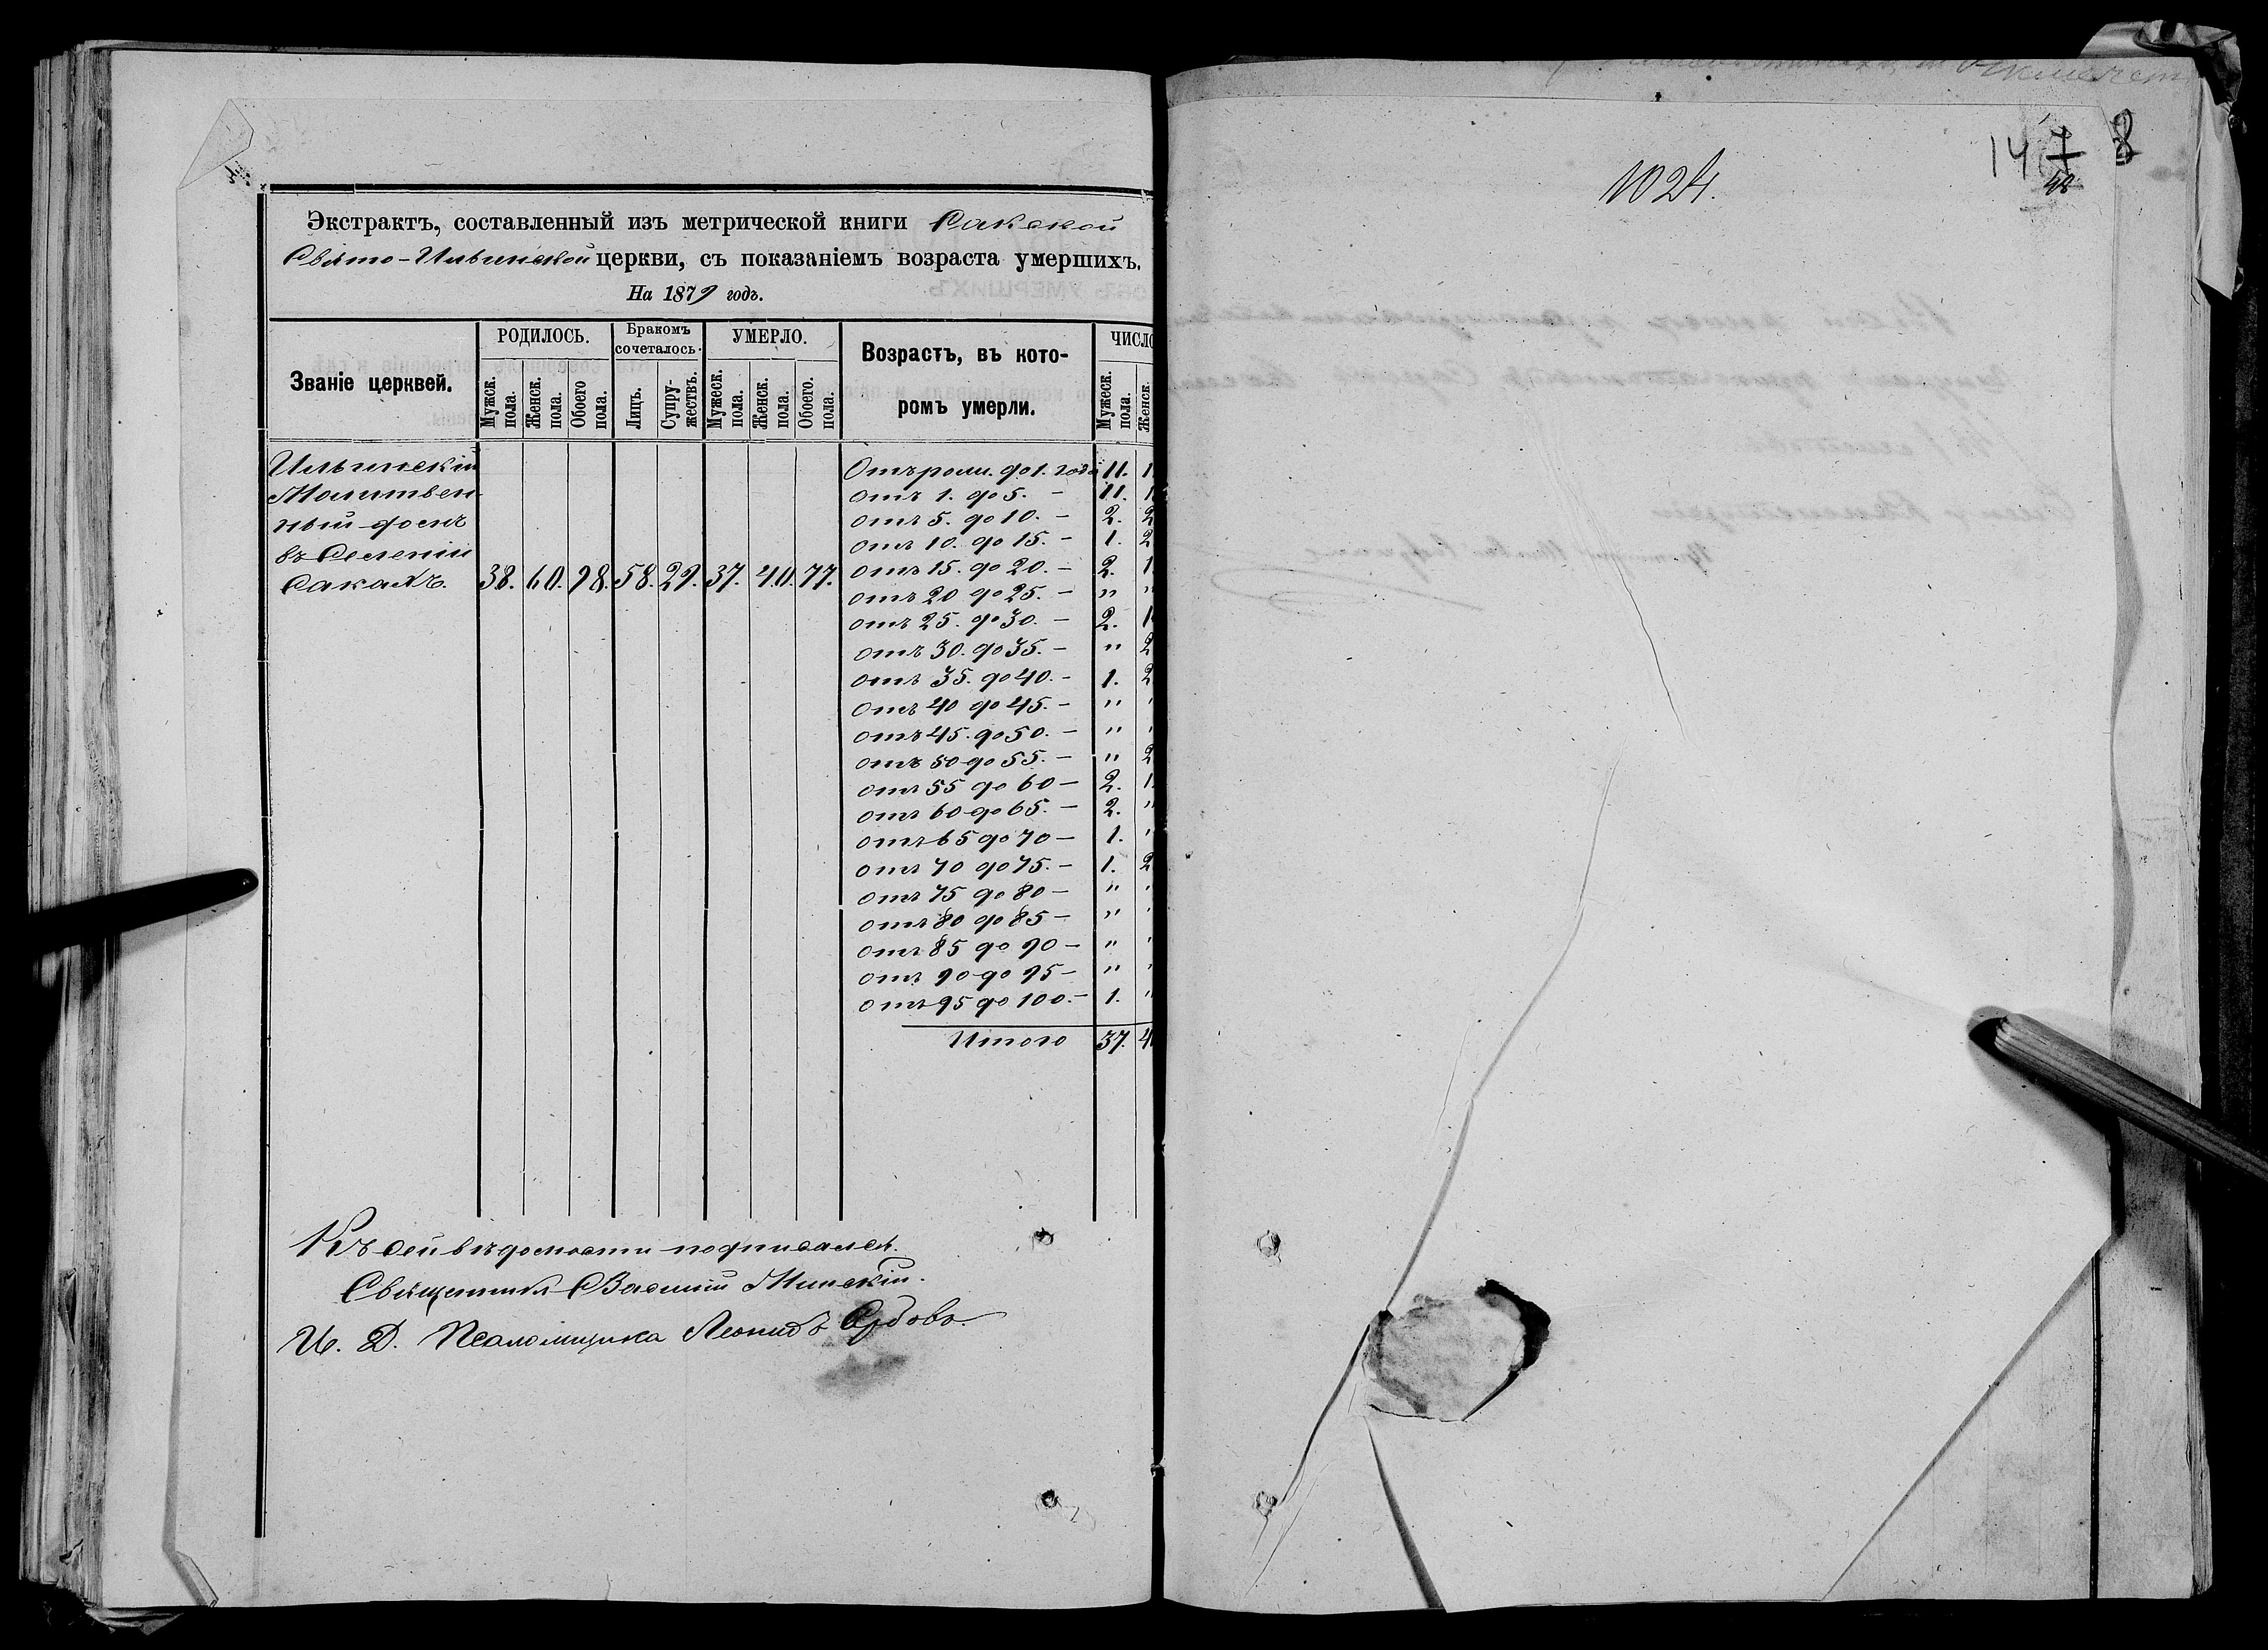 Экстрактъ, составленный изъ метрической книги Сакской
Свято-Ильинской церкви, съ показаніемъ возраста умершихъ.
На 1879 годъ.
Званіе церквей.
РОДИЛОСЬ.
Мужск. пола.
Женск. пола.
Обоего пола.
Бракомъ сочеталось.
Лицъ.
Супружествъ.
УМЕРЛО.
Мужеск. пола.
Женск. пола.
Обоего. пола.
Возрастъ, въ кото-
ромъ умерли.
ЧИСЛО
Мужеск. пола.
Женск.
Ильинскій
Молитвен-
ный домъ
въ Селеніи
Сакахъ. 38. 60. 98. 58. 29. 37. 40. 77.
Отъ рожд. до 1. года 11. 1
отъ 1. до 5. — 11. 1
отъ 5. до 10. — 2. 2
отъ 10. до 15. — 1. 2
отъ 15. до 20. — 2. 1
отъ 20 до 25. — " "
отъ 25. до 30. — 2. 1
отъ 30. до 35. — " 2
отъ 35. до 40. — 1. 2
отъ 40 до 45. — " "
отъ 45. до 50. — " "
отъ 50 до 55. — " 2
отъ 55 до 60 — 2. 1.
отъ 60 до 65. — 2. "
отъ 65 до 70 — 1. "
отъ 70 до 75. — 1. 2
отъ 75 до 80 — " "
отъ 80 до 85 — " "
отъ 85 до 90 — " "
отъ 90 до 95 — " "
отъ 95 до 100. — 1. "
Итого 37. 4
Къ сей вѣдомости подписался.
Священникъ Василій Минскій.
И. Д. Псаломщика Леонидъ Орловъ.
1024.
147
8